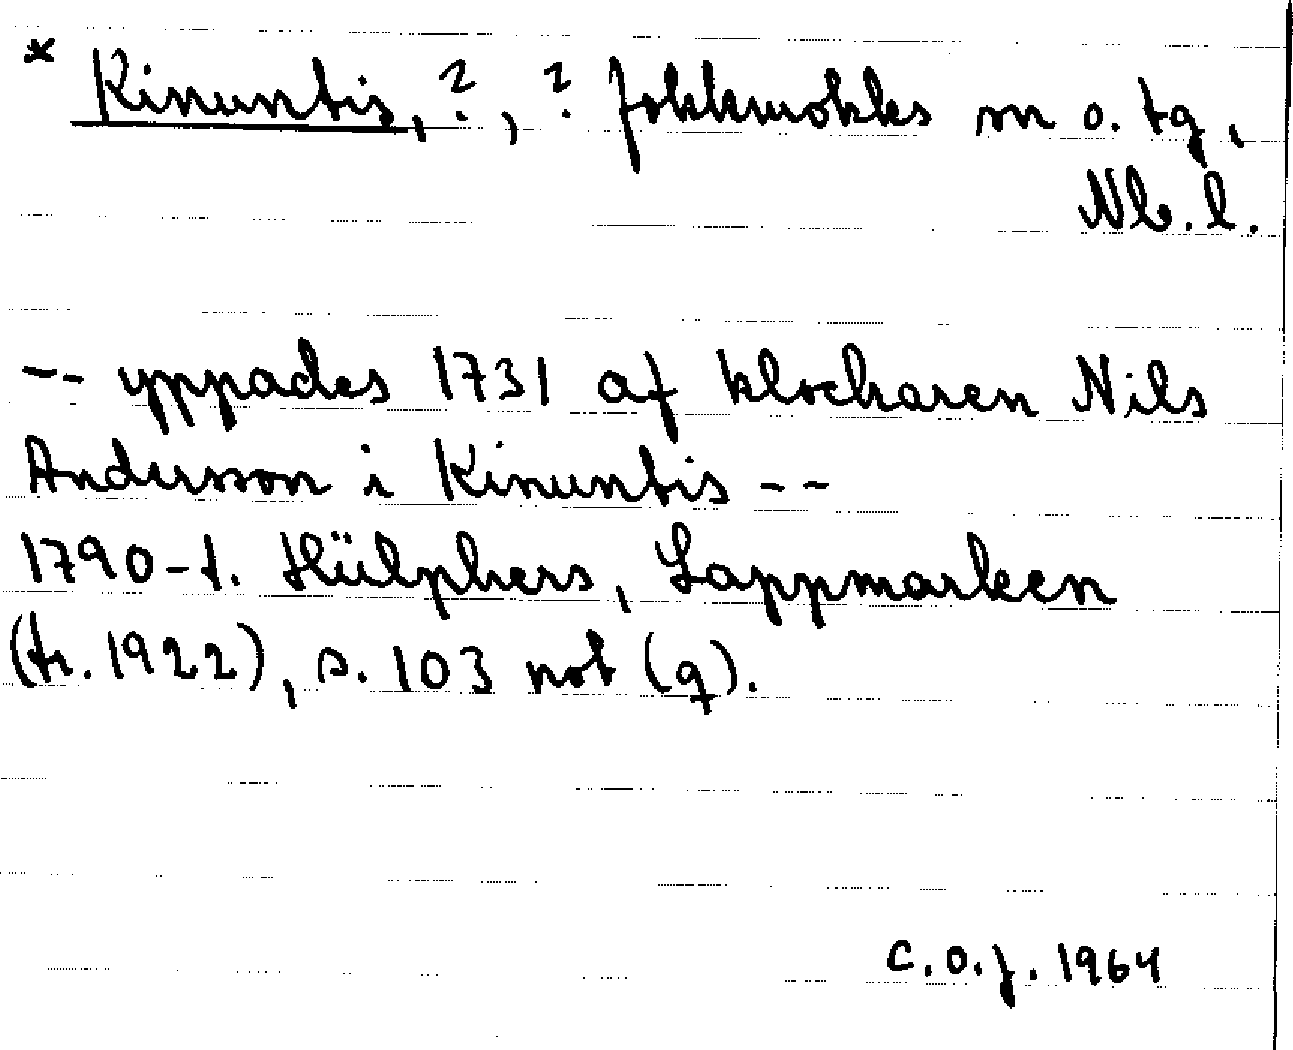 * Kinuntis, ?, ? Jokkmokks sn o. tg,
Nb. l.
-- yppades 1731 af klockaren Nils
Andersson i Kinuntis --
1790-t. Hülphers, Lappmarken
(tr. 1922), s. 103 not (q).
C.O.J. 1964